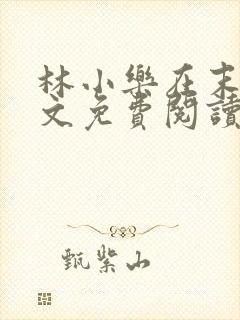 林小樂在末
文免費閱讀
甄紫山